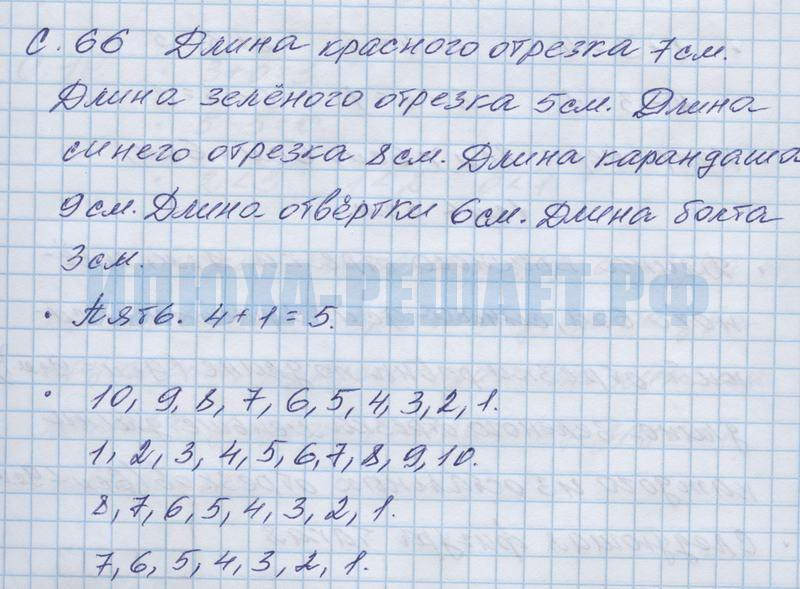 С. 66 Длина красного отрезка 7 см.
Длина зелёного отрезка 5 см. Длина
синего отрезка 8 см. Длина карандаша
9 см. Длина отвёртки 6 см. Длина болта
3 см.
ПЛЮХА-РЕШАЕТ.РФ
• Пять. 4 + 1 = 5.
• 10, 9, 8, 7, 6, 5, 4, 3, 2, 1.
1, 2, 3, 4, 5, 6, 7, 8, 9, 10.
8, 7, 6, 5, 4, 3, 2, 1.
7, 6, 5, 4, 3, 2, 1.